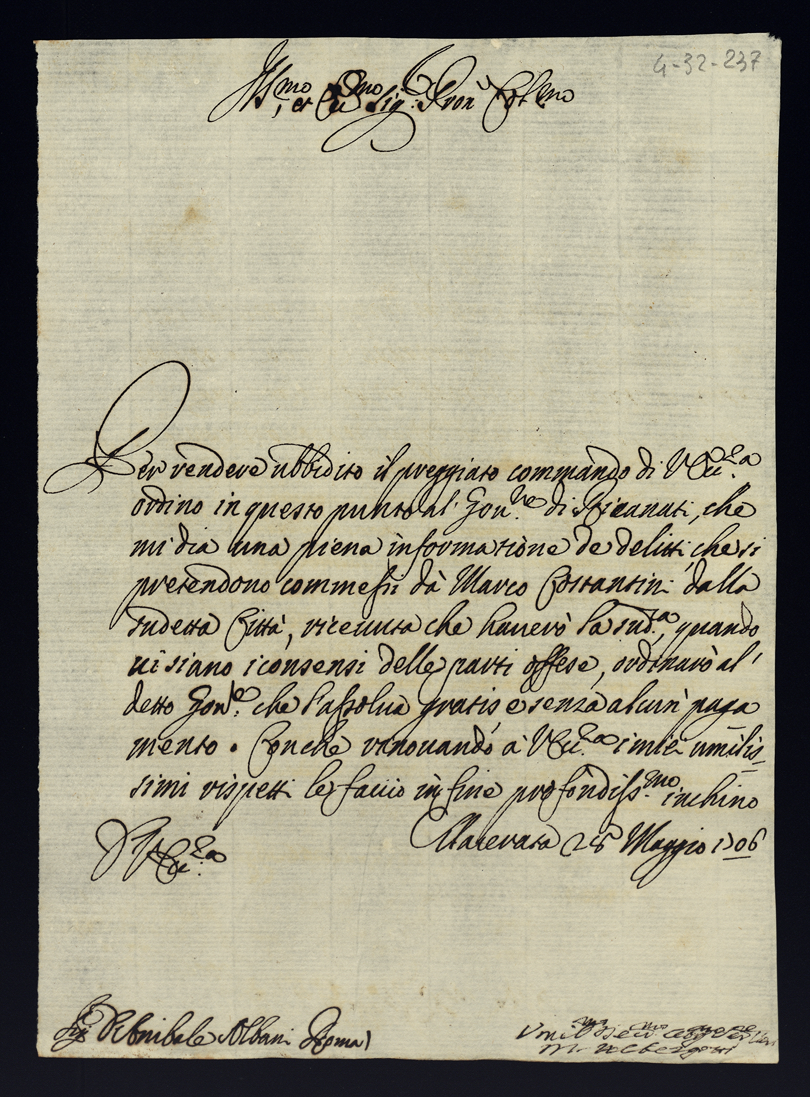 4-32-237
Ill.mo, et Ecc.mo Sig.r Pron' Col.mo
Per rendere ubbidito il preggiato commando di V. Ecc.za
ordino in questo punto al' Gou.re di Ricanati, che
mi dia una piena informatione de delitti, che si
pretendono commessi dà Marco Costantini dalla
sudetta Città, riceuuta che hauerò la sud.ta, quando
ui siano i consensi delle parti offese, ordinarò al'
detto Gou.re che l'assolua gratis e senza alcun' paga
mento. Con che rinouando à V. Ecc.za i miei umilis-
simi rispetti le faccio in fine profondiss.mo inchino
Macerata 28 Maggio 1706
D V. Ecc.za
Sig.r D. Anibale Albani Roma